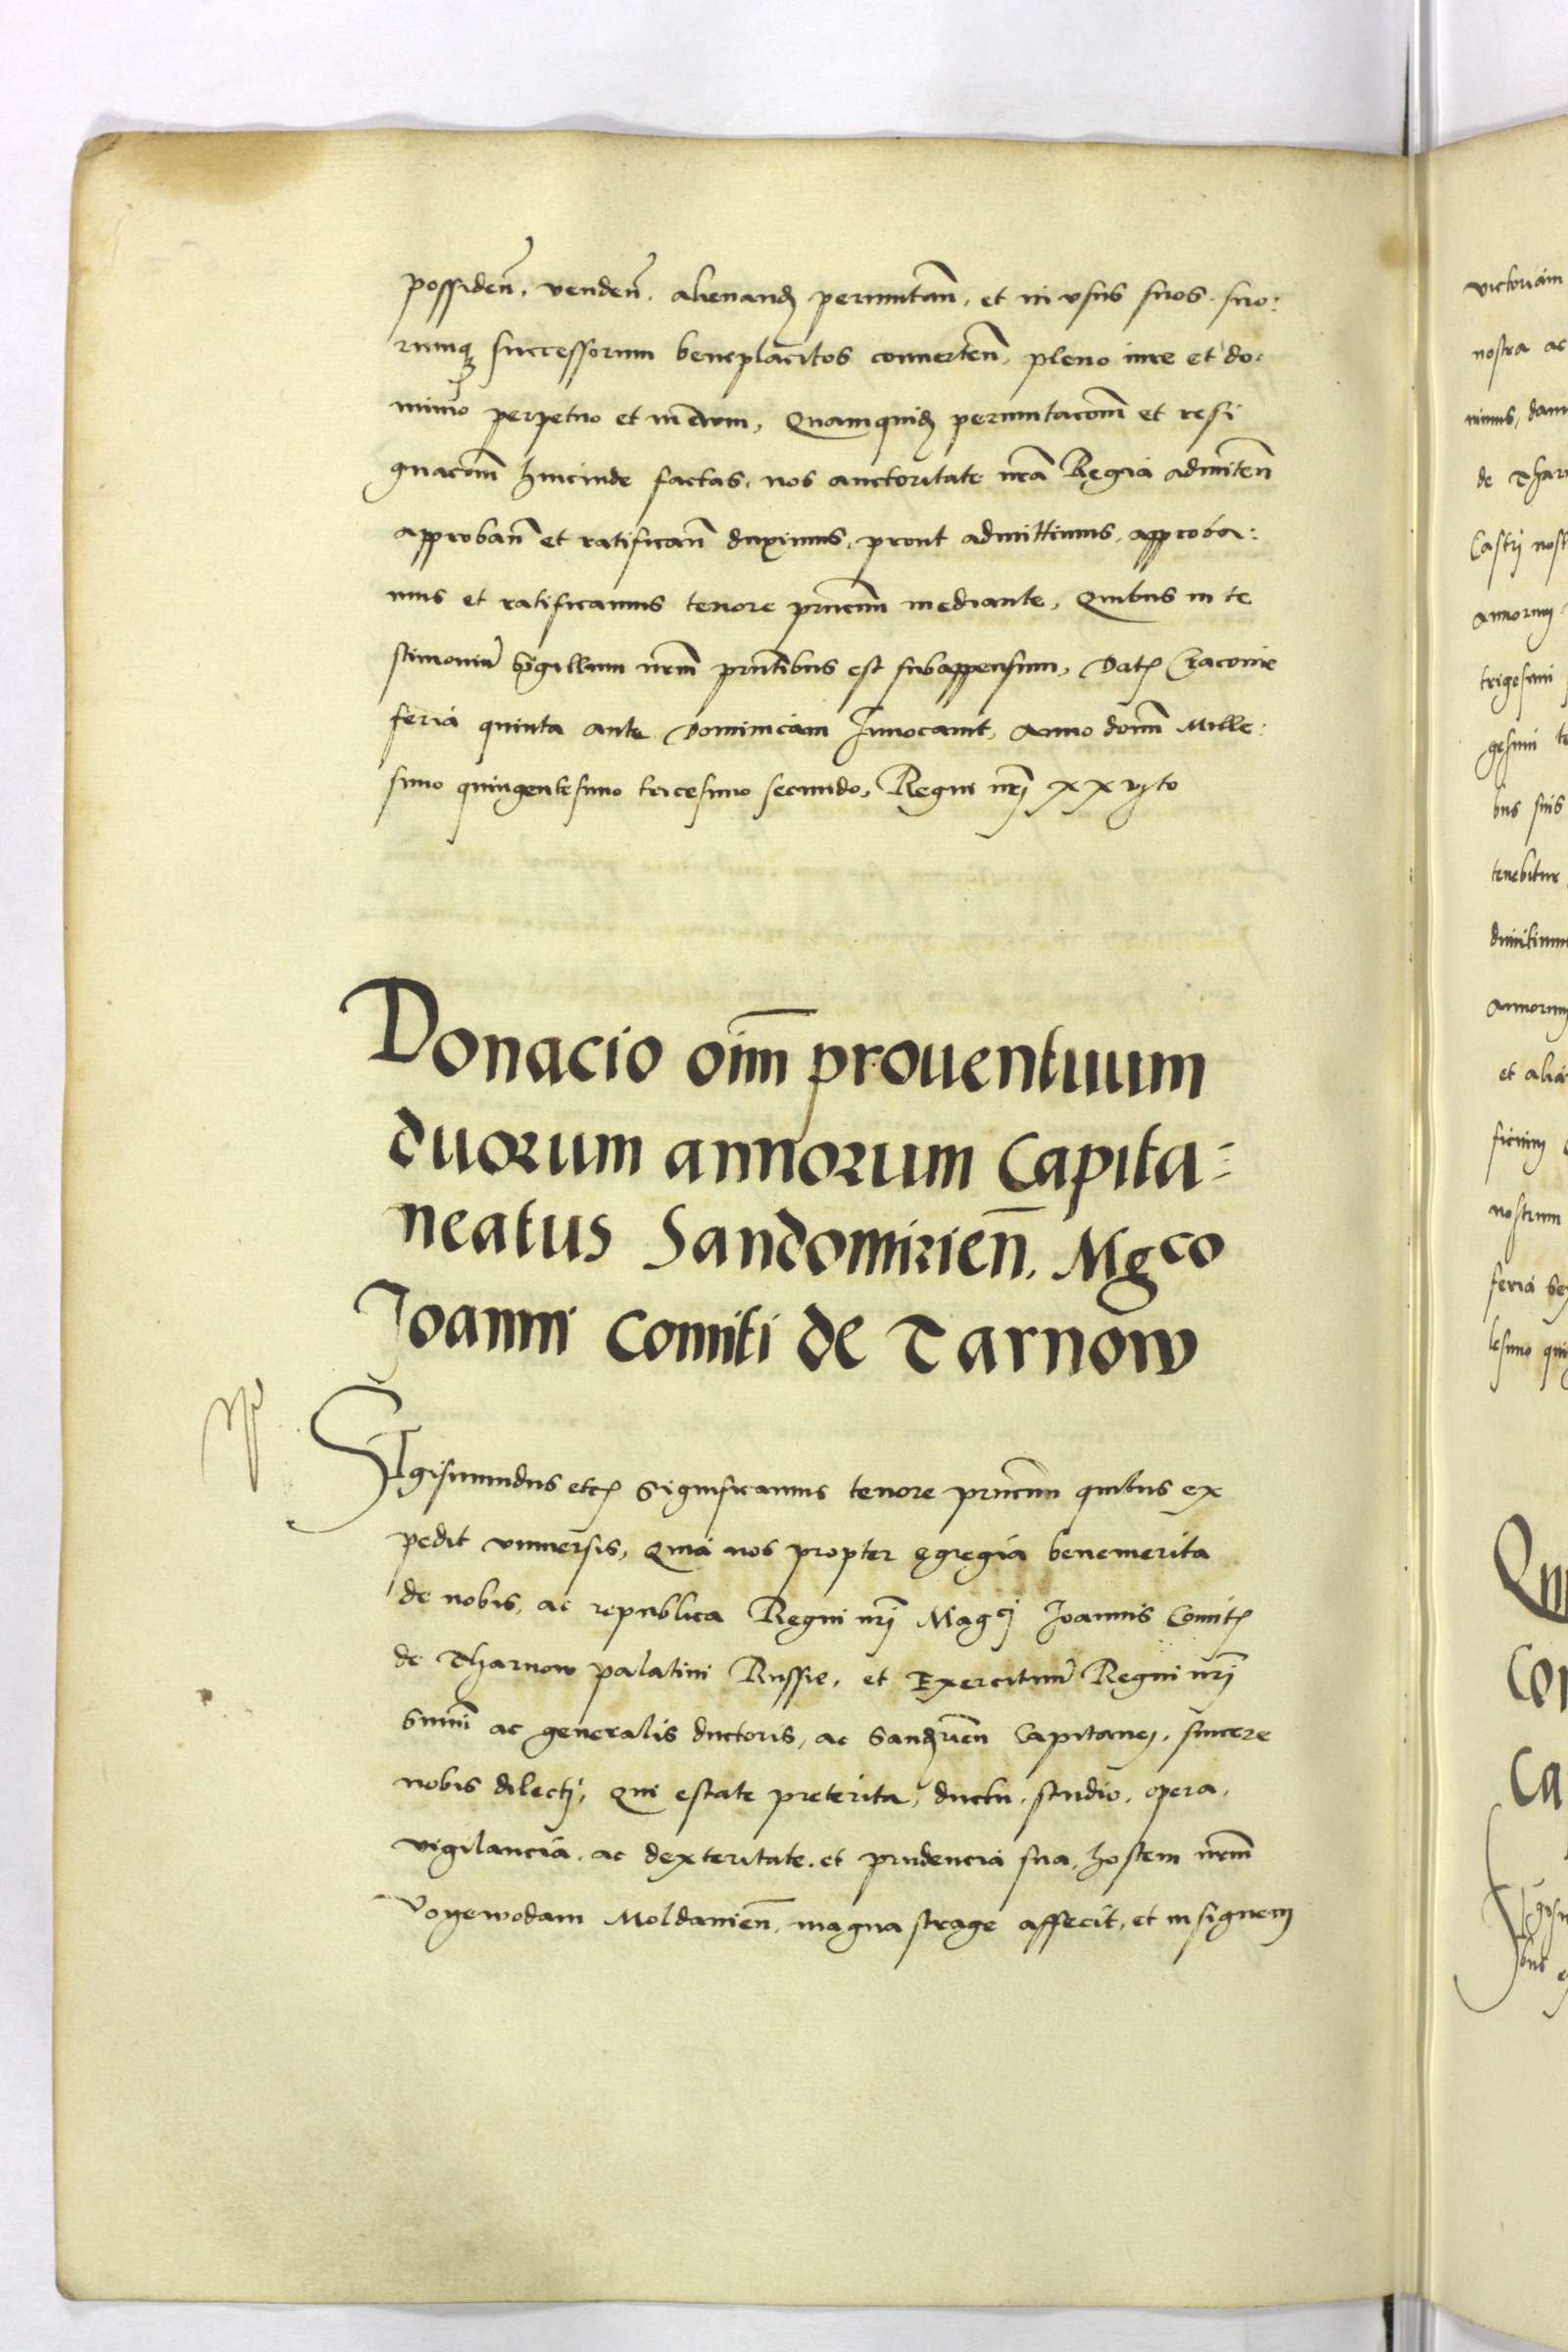 possideñ. vendeñ. alienand permutañ. et in vsus suos. suo:
rumq successorum beneplacitos conuerteñ, pleno iure et do:
minio perpetuo et in euum, Quamquid permutacoñ et resi
gnacoñ hincinde factas, nos auctoritate nrã Regia admitteñ
approbañ et ratificañ duximus, prout admittimus, approba:
mus et ratificamus tenore prñcium mediante, Quibus in te
stimoniũ Sigillum nrm̃ prñtibus est subappensum, Dat Cracouie
feria quinta ante Dominicam Inuocauit, Anno domi Mille:
simo quingentesimo tricesimo secundo, Regni nrj̃ xxvjto
Donacio oim̃ prouentuum
duorum annorum Capita:
neatus Sandomirieñ. Mgco
Joanni Comiti de Tarnow
SIgismundus etc Significamus tenore prñcium quibus ex
pedit vniuersis, Quia nos propter egregia benemerita
de nobis, ac republica Regni nrj̃ Magcj Joannis Comit
de Tharnow palatini Russie, et Exercituũ Regni nrj̃
Summi ac generalis ductoris, ac Sandrieñ Capitanej, sincere
nobis dilectj, Qui estate preterita, ductu, studio, opera,
vigilancia, ac dexteritate, et prudencia sua, hostem nrm̃
Voyewodam Moldauieñ, magna strage affecit, et insignem
victoriam
nostra ac
nimus, dam
de Thar
Castrj nost
annorum
trigesimi
gesimi te
bus suis
tenebitur
dimittimu
Annorum
et alia
nostrum
feria Se
lesimo qui
Con
Ca